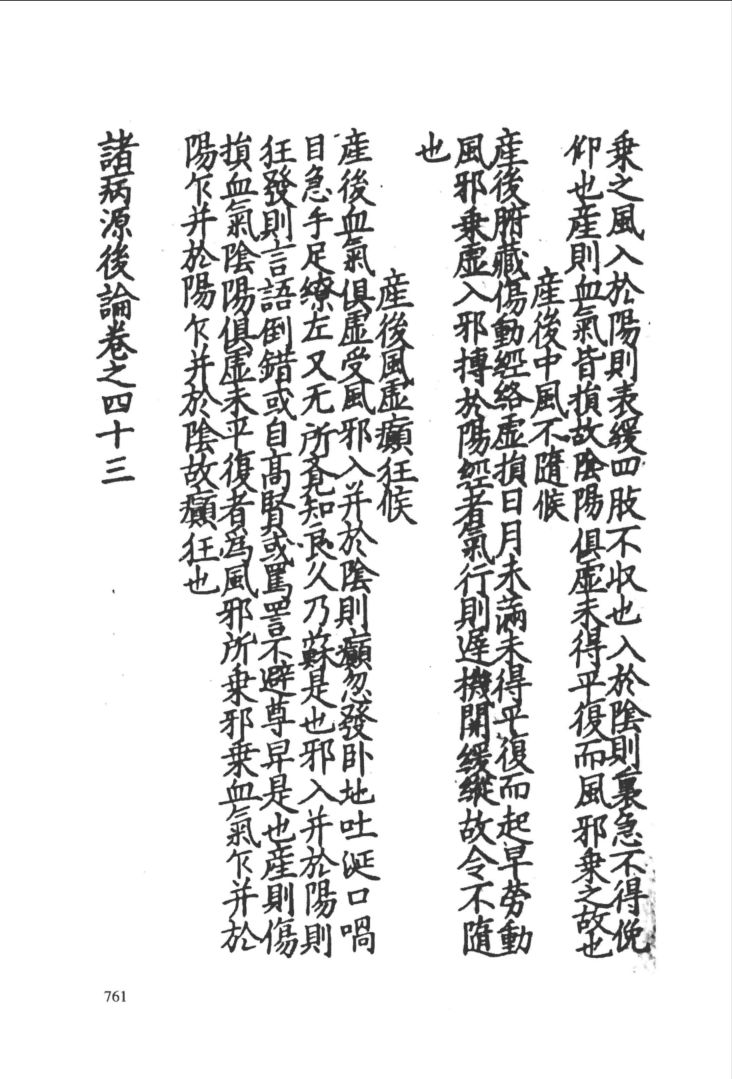 乗之風入於陽則表緩四肢不収也入於陰則裏急不得俛
仰也産則血氣皆損故陰陽俱虚未得平復而風邪乗之故也
産後中風不隨候
産後腑藏傷動經絡虚損日月未滿未得平復而起早勞動
風邪乗虚入邪搏於陽經者氣行則遲機關緩縱故令不隨
也
産後風虚癲狂候
産後血氣俱虚受風邪入并於陰則癲忽發卧地吐涎口喎
目急手足繚左又无所覺知良久乃蘇是也邪入并於陽則
狂發則言語倒錯或自高賢或罵詈不避尊卑是也産則傷
損血氣陰陽俱虚未平復者為風邪所乗邪乗血氣乍并於
陽乍并於陽乍并於陰故癲狂也
諸病源後論卷之四十三
761